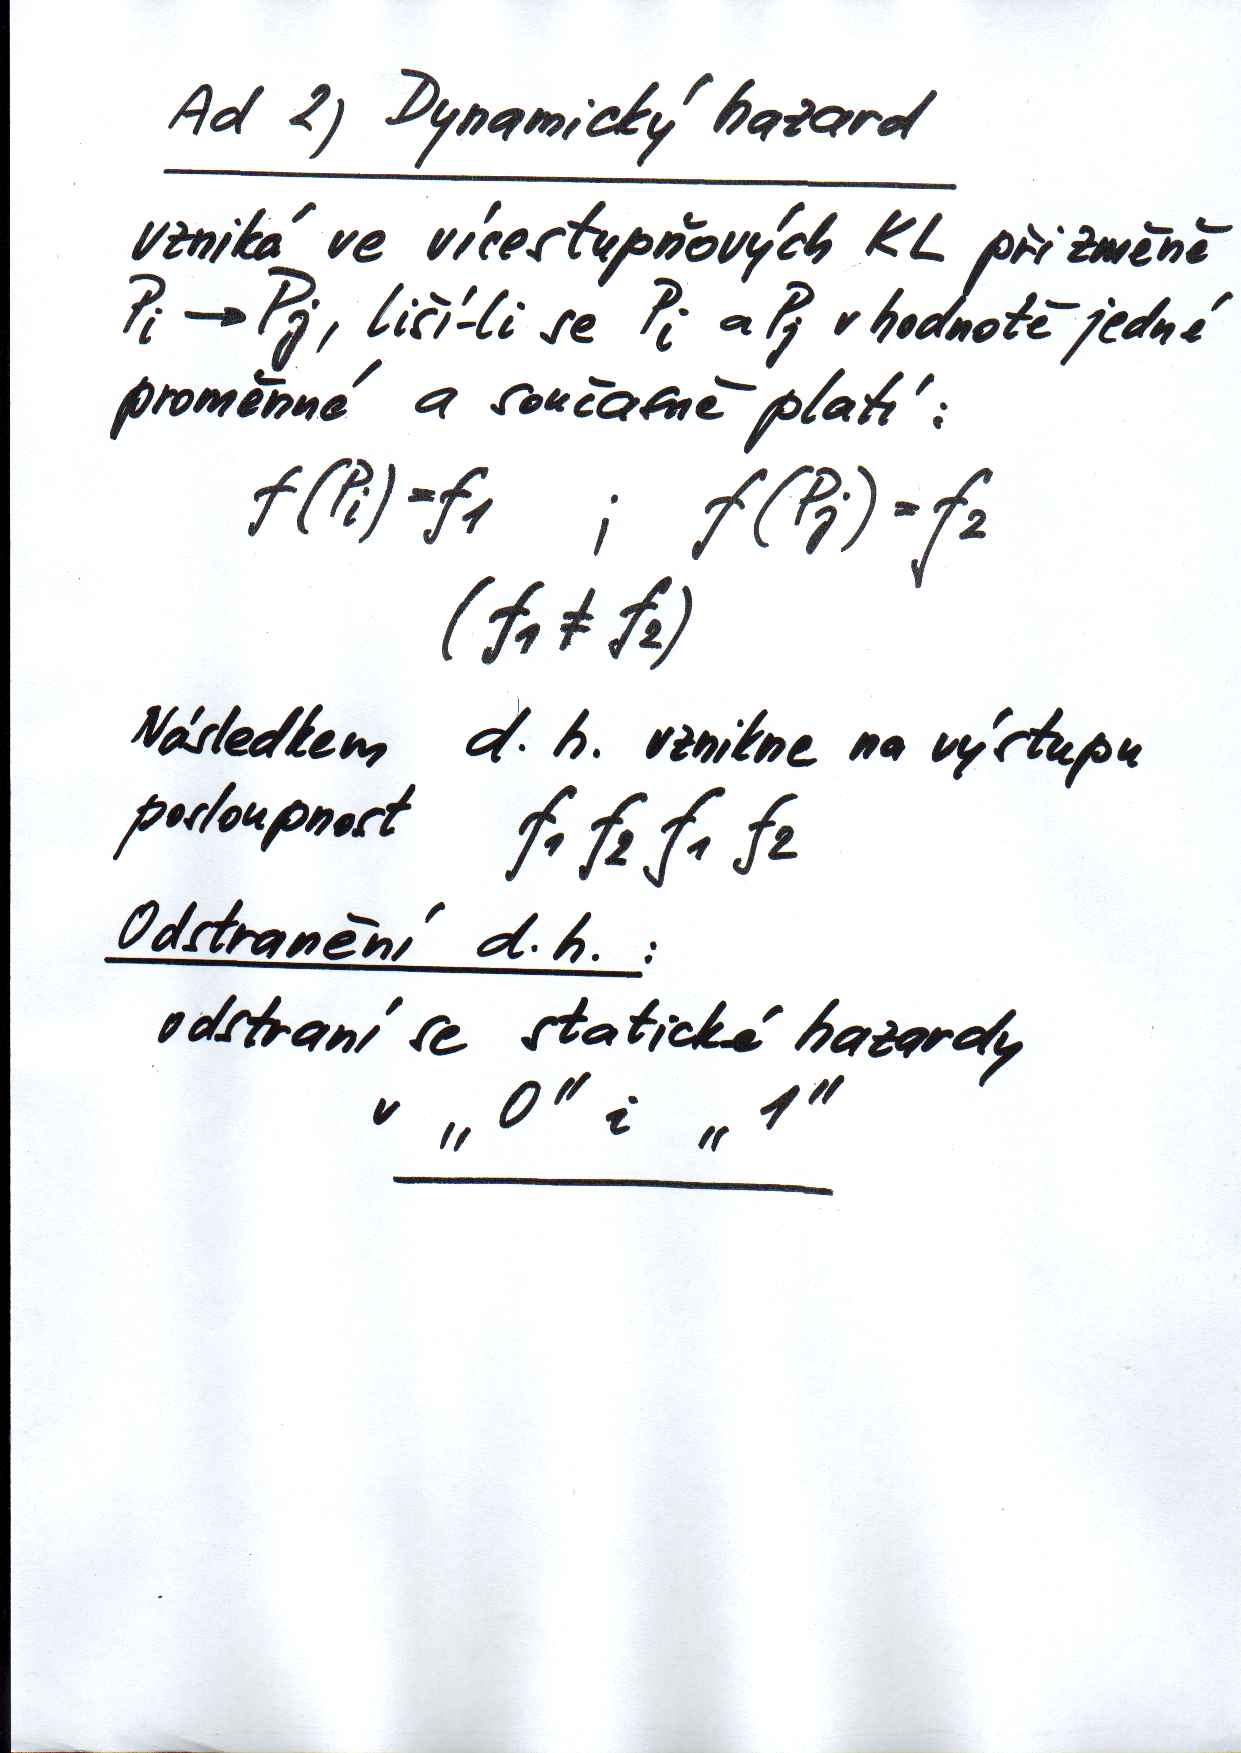 Ad 2) Dynamický hazard
vzniká ve vícestupňových KL při změně
Pi → Pj, liší-li se Pi a Pj v hodnotě jedné
proměnné a současně platí:
f(Pi) = f1 ; f(Pj) = f2
(f1 ≠ f2)
Následkem d. h. vznikne na výstupu
posloupnost f1 f2 f1 f2
Odstranění d. h. :
odstraní se statické hazardy
v „0" i „1"